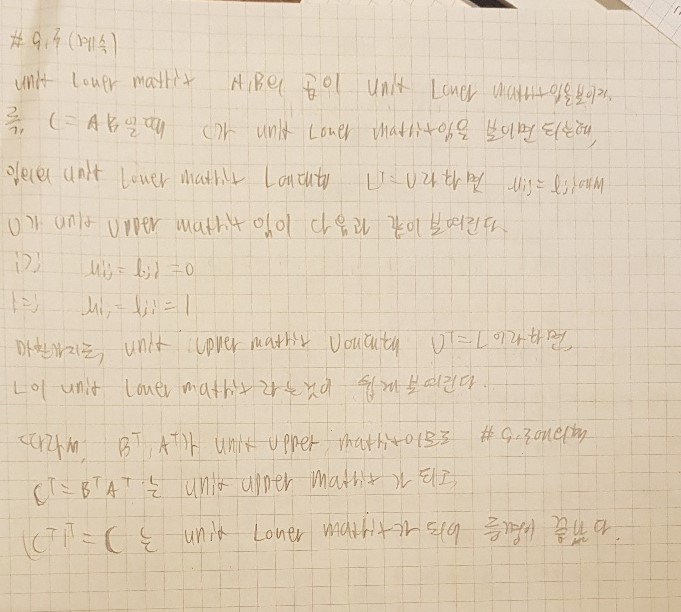 # 5.3 (계속)
unit Lower matrix A, B의 곱이 unit Lower matrix임을 보이자.
즉, C = AB일 때 C가 unit Lower matrix임을 보이면 되는데,
임의의 unit Lower matrix L에 대해 Lᵀ = U라 하면 uᵢⱼ = lⱼᵢ이므로
U가 unit upper matrix 임이 다음과 같이 보여진다.
i>j uᵢⱼ = lⱼᵢ = 0
i=j uᵢⱼ = lⱼᵢ = 1
마찬가지로, unit upper matrix U에 대해 Uᵀ = L이라 하면,
L이 unit Lower matrix 라는 것이 쉽게 보여진다.
따라서, Bᵀ, Aᵀ가 unit upper matrix이므로 # 5.2에 의해
Cᵀ = BᵀAᵀ 는 unit upper matrix 가 되고,
(Cᵀ)ᵀ = C 는 unit Lower matrix가 되어 증명이 끝난다.